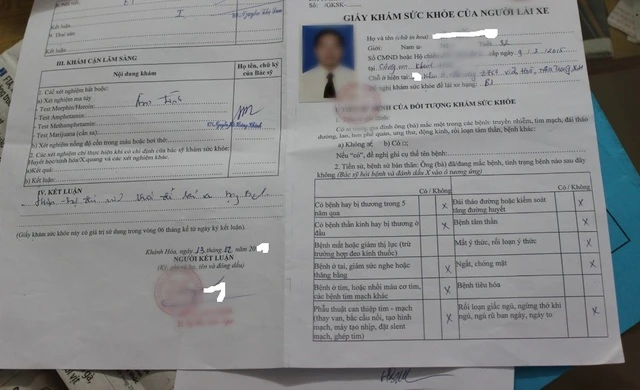 Kết luận
b) Thai sản:
Kết luận
III. KHÁM CẬN LÂM SÀNG
Nội dung khám
Họ tên, chữ
ký của
Bác sỹ
1. Các xét nghiệm bắt buộc:
a) Xét nghiệm ma túy
- Test Morphin/Heroin:
- Test Amphetamin:
- Test Methamphetamin:
- Test Marijuana (cần sa):
Âm Tính
b) Xét nghiệm nồng độ cồn trong máu hoặc hơi thở:
2. Các xét nghiệm chỉ thực hiện khi có chỉ định của bác sỹ khám sức khỏe:
Huyết học/sinh hóa/X.quang và các xét nghiệm khác.
a) Kết quả:
b) Kết luận:
IV. KẾT LUẬN
(Giấy khám sức khỏe này có giá trị sử dụng trong vòng 06 tháng kể từ ngày ký kết luận).
Khánh Hòa, ngày 13 tháng 12 năm 20
NGƯỜI KẾT LUẬN
(Ký, ghi rõ họ, tên và đóng dấu)
Số: /GKSK-
GIẤY KHÁM SỨC KHỎE CỦA NGƯỜI LÁI XE
Họ và tên (chữ in hoa)
Giới: Nam
Số CMND hoặc Hộ chiếu cấp ngày 9/3/2015
tại Công an Khánh Hòa
Chỗ ở hiện tại:
Đề nghị khám sức khỏe để lái xe hạng: B1
I. TIỀN SỬ BỆNH CỦA ĐỐI TƯỢNG KHÁM SỨC KHỎE
1. Tiền sử gia đình:
Có ai trong gia đình ông (bà) mắc một trong các bệnh: truyền nhiễm, tim mạch, đái tháo
đường, lao, hen phế quản, ung thư, động kinh, rối loạn tâm thần, bệnh khác:
a) Không b) Có □;
Nếu “có”, đề nghị ghi cụ thể tên bệnh:
2. Tiền sử, bệnh sử bản thân: Ông (bà) đã/đang mắc bệnh, tình trạng bệnh nào sau đây
không (Bác sỹ hỏi bệnh và đánh dấu X vào ô tương ứng)
Có / Không Có / Không
Có bệnh hay bị thương trong 5 năm qua X Đái tháo đường hoặc kiểm soát tăng đường huyết X
Có bệnh thần kinh hay bị thương ở đầu X Bệnh tâm thần X
Bệnh mắt hoặc giảm thị lực (trừ trường hợp đeo kính thuốc) X Mất ý thức, rối loạn ý thức X
Bệnh ở tai, giảm sức nghe hoặc thăng bằng X Ngất, chóng mặt X
Bệnh ở tim, hoặc nhồi máu cơ tim, các bệnh tim mạch khác X Bệnh tiêu hóa X
Phẫu thuật can thiệp tim - mạch (thay van, bắc cầu nối, tạo hình mạch, máy tạo nhịp, đặt slent mạch, ghép tim) X Rối loạn giấc ngủ, ngừng thở khi ngủ, ngủ rũ ban ngày, ngáy to X